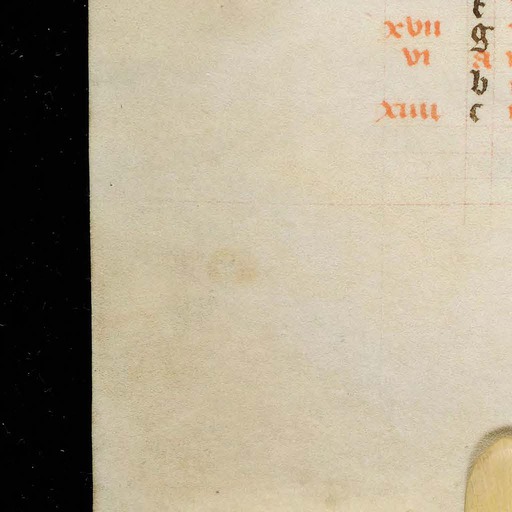 xvii g
vi a
b
xiiii c